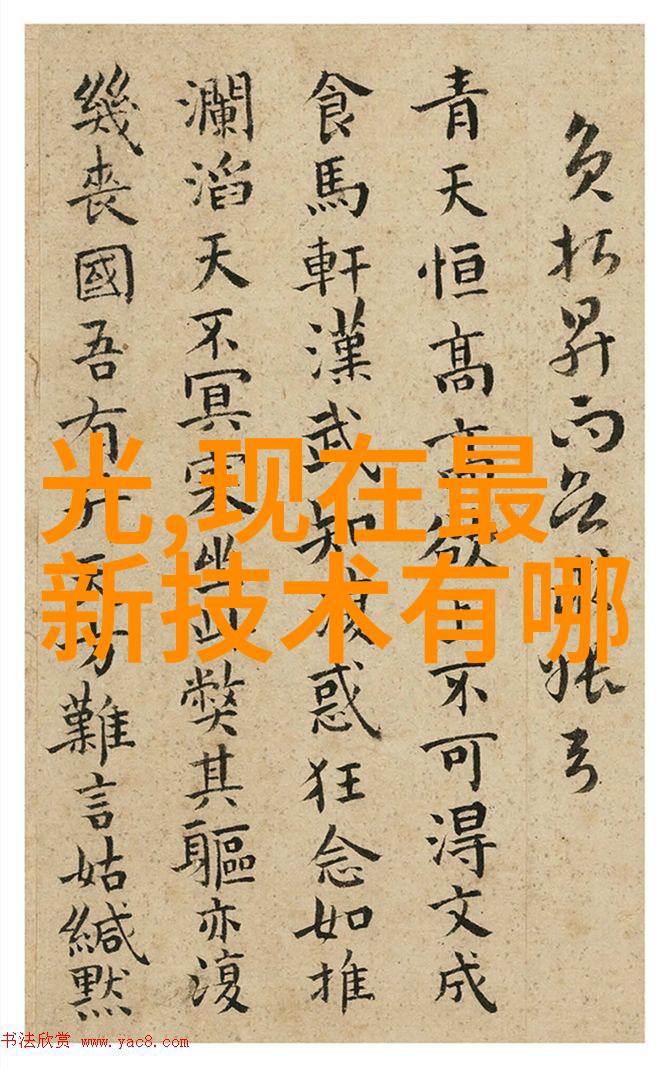 昇而
青天恒高高欲上不可得文成
食馬軒漢武知惑狂念如推
瀾滔天不冥坐此弊其軀亦復
幾喪國吾有難言姑緘默
光,现在最
新技术有哪
书法欣赏 www.yac8.com